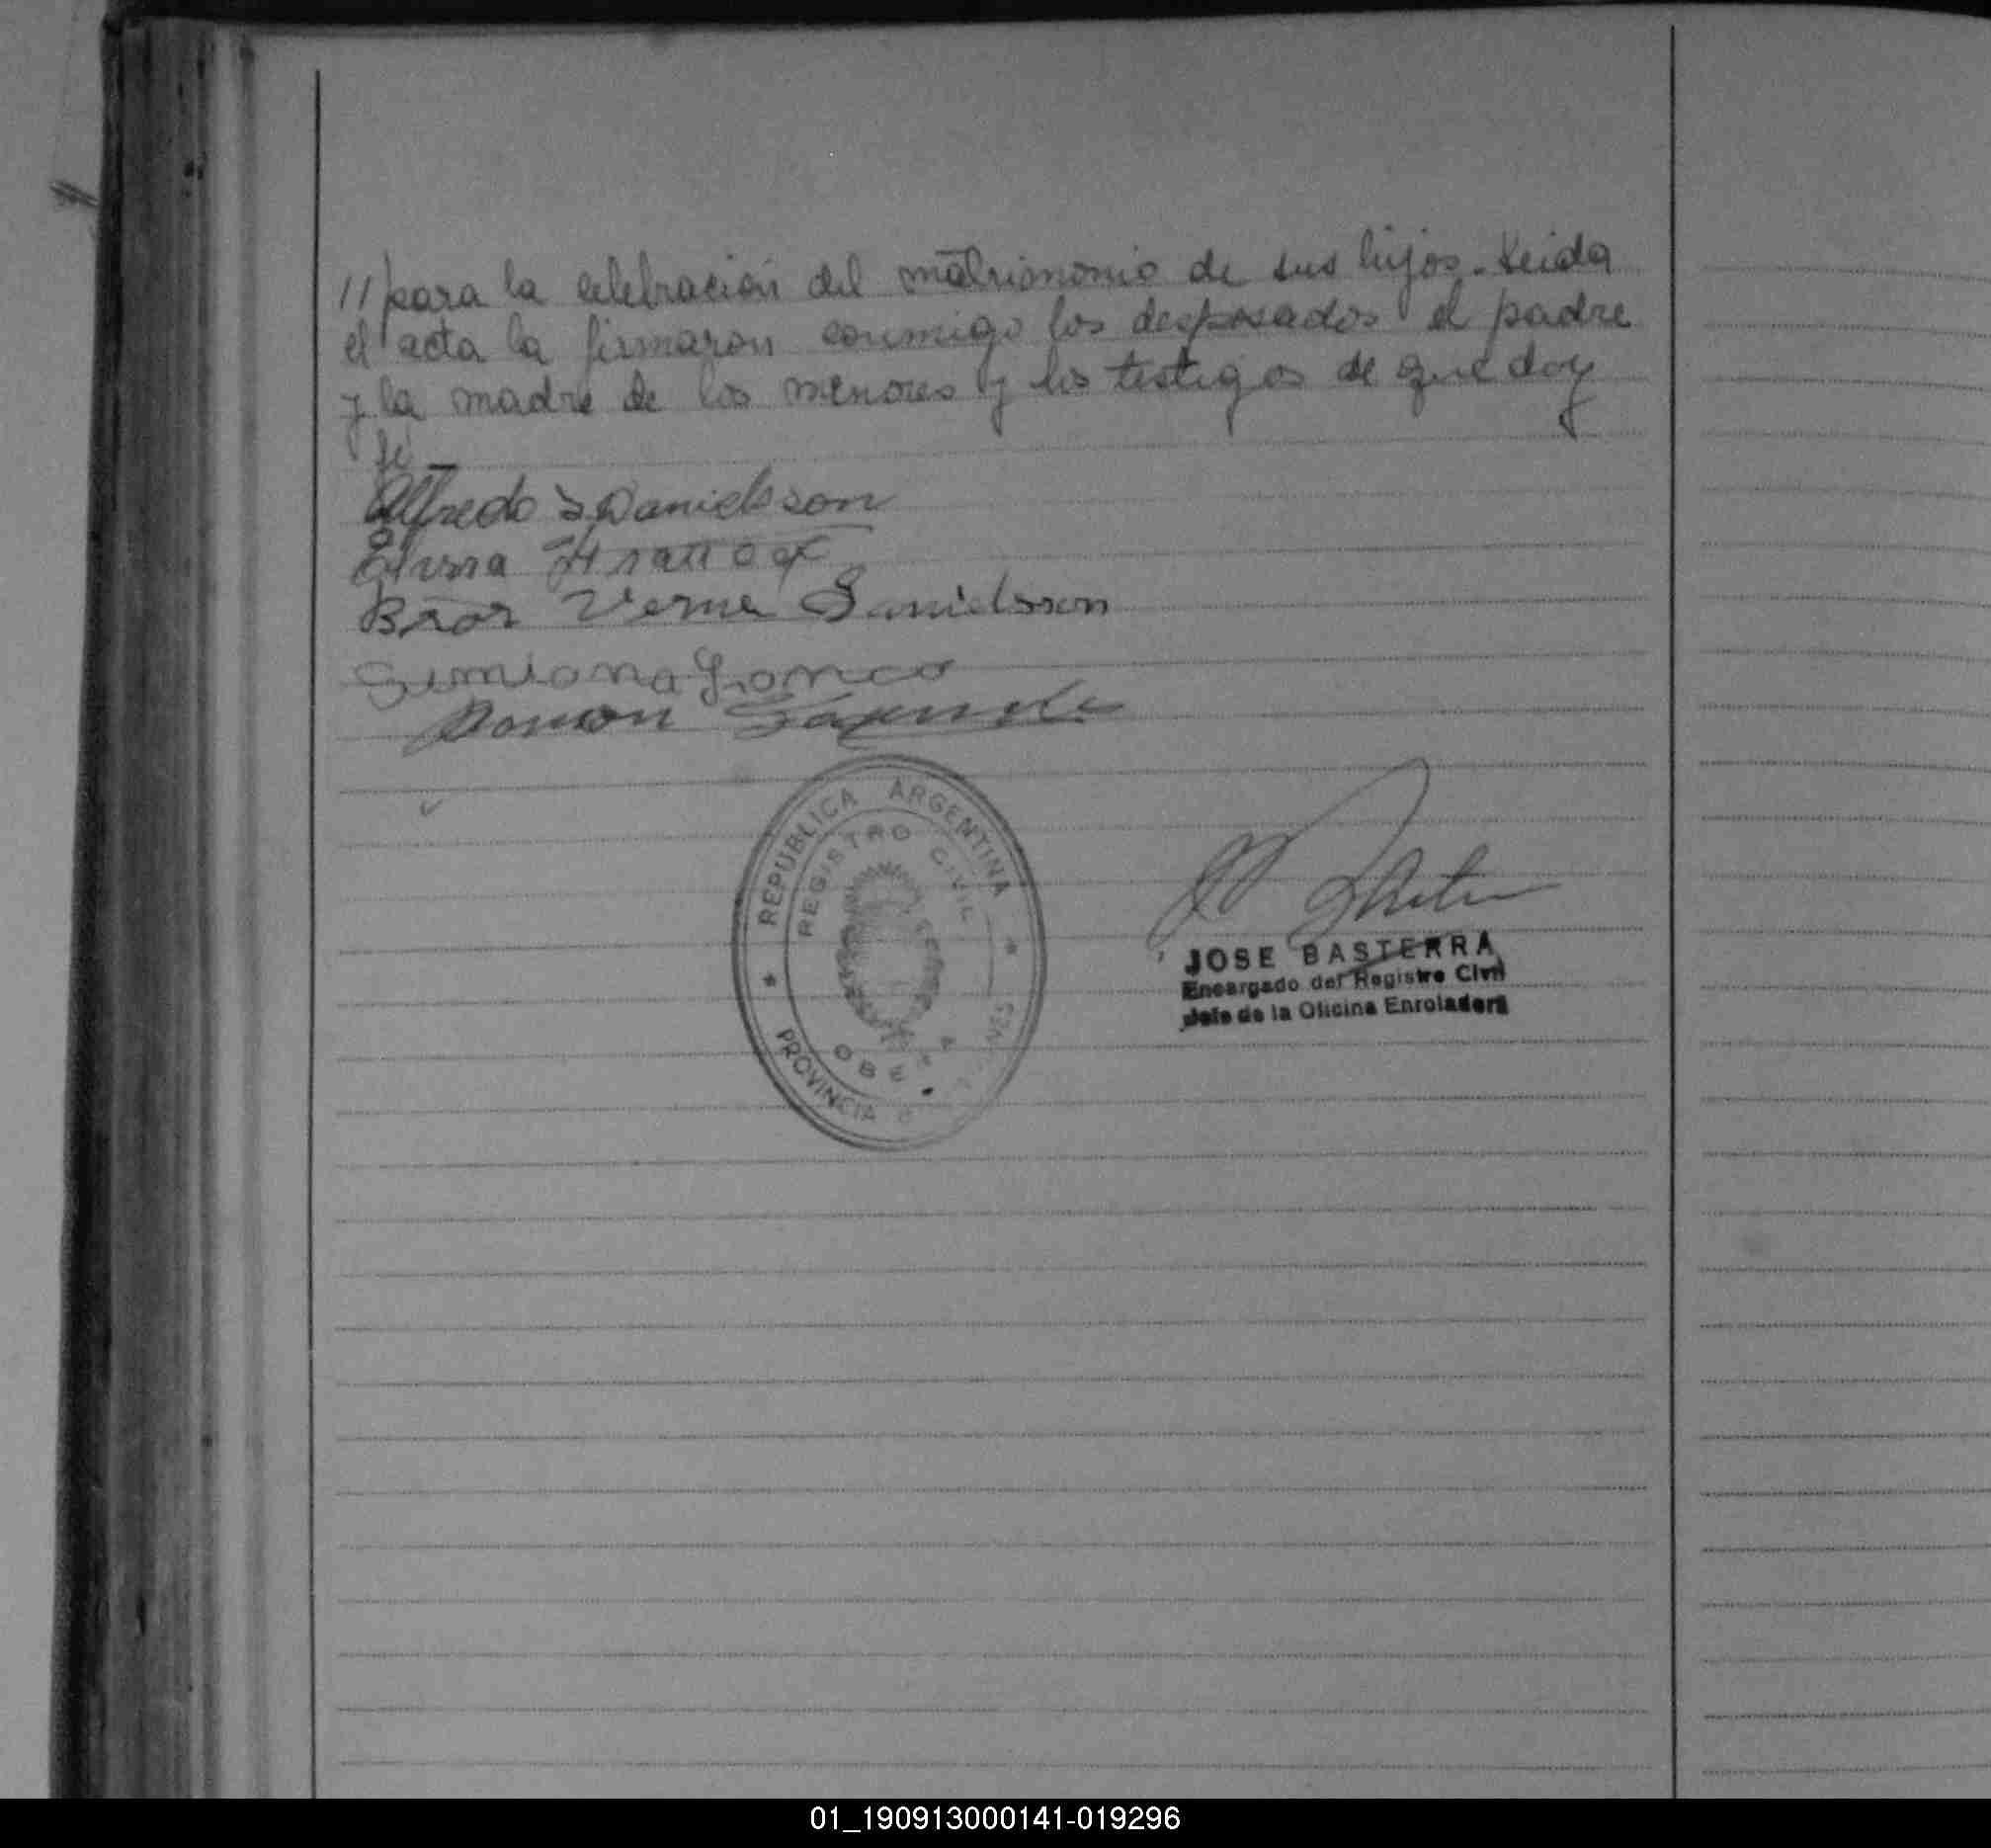 // para la celebración del matrimonio de sus hijos. Leida
el acta la firmaron conmigo los desposados el padre
y la madre de los menores y los testigos de que doy
fé —
Alfredo Danielsson
Elvira
Bror Verner Danielsson
Simiona
Ramon
REPUBLICA ARGENTINA
REGISTRO CIVIL
OBERA
PROVINCIA
JOSE BASTERRA
Encargado del Registro Civil
Jefe de la Oficina Enroladora
01_190913000141-019296